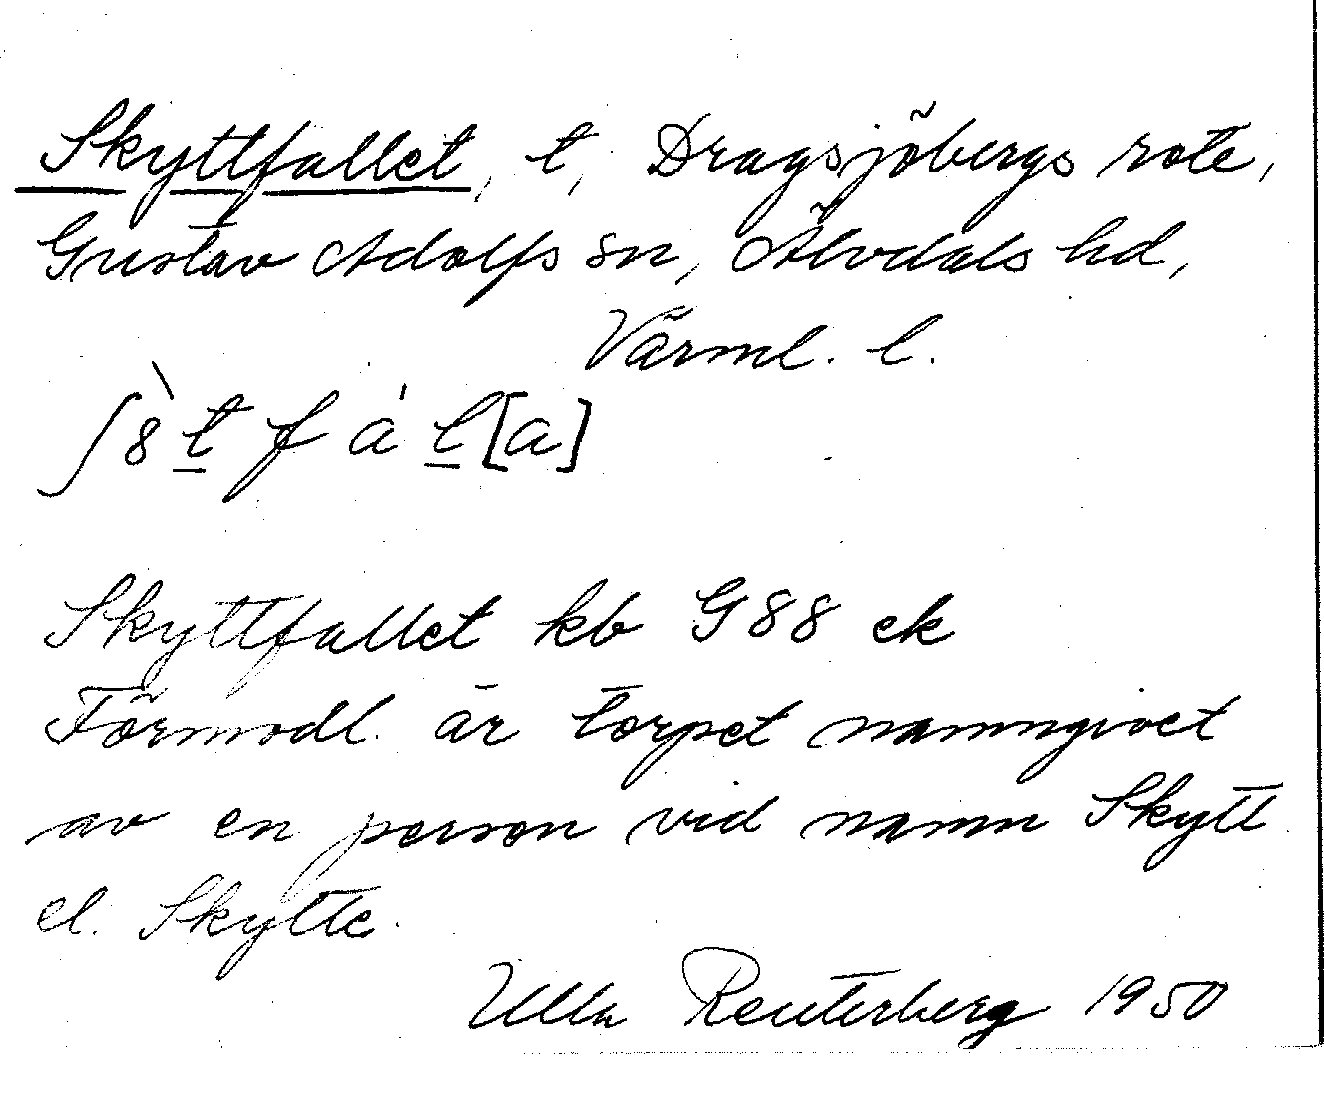 Skyttfallet, t, Dragsjöbergs rote,
Gustav Adolfs sn, Älvdals hd,
Värml. l.
ʃ8̀t̲ f á l̲[a]
Skyttfallet kb G88 ek
Förmodl. är torpet namngivet
av en person vid namn Skytt
el. Skytte.
Ulla Reuterberg 1950